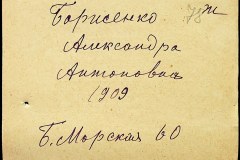 Борисенко 78 ж
Александра
Антоновна
1909
Б. Морская 60